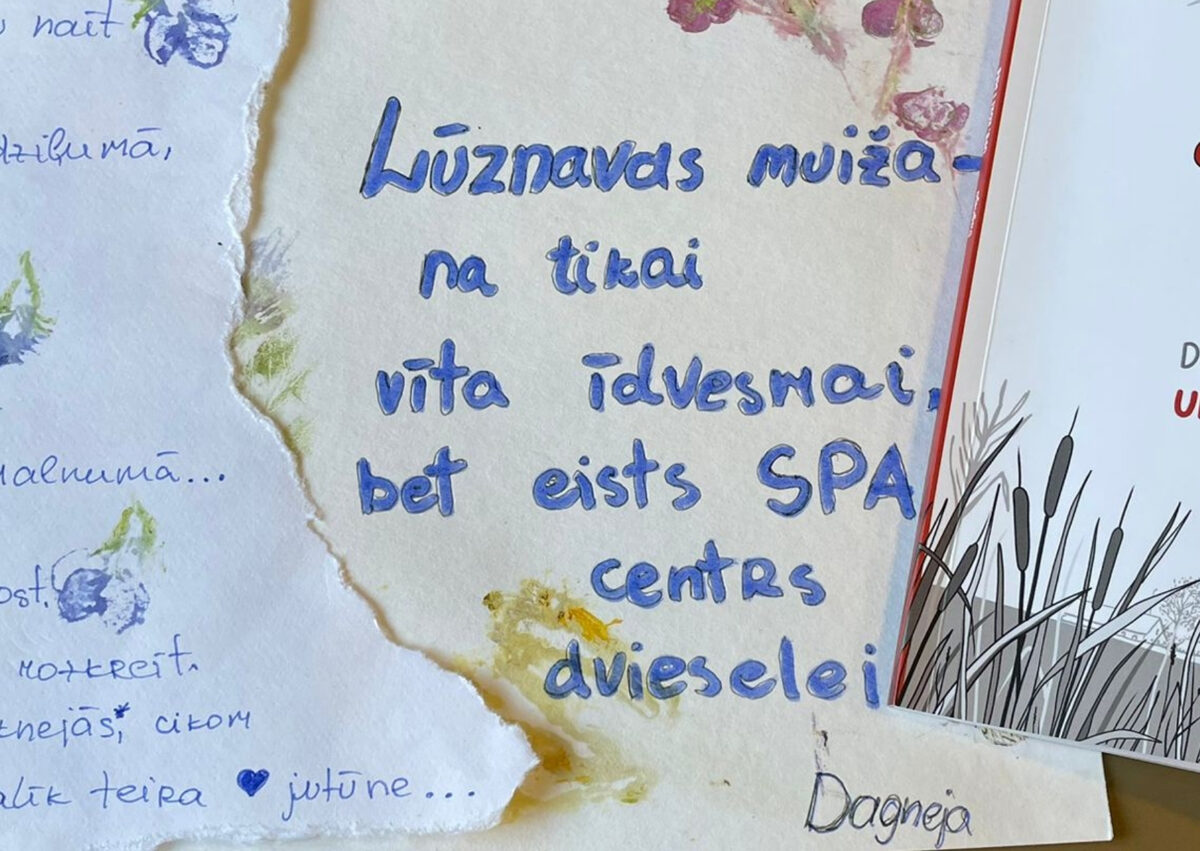 nait
dziļumā,
malnumā...
ost.
rozkreit.
knejās", cikom
alīk teira ♥ jutūne...
Lūznavas muiža-
na tikai
vīta īdvesmai,
bet eists SPA
centrs
dvieselei
Dagneja